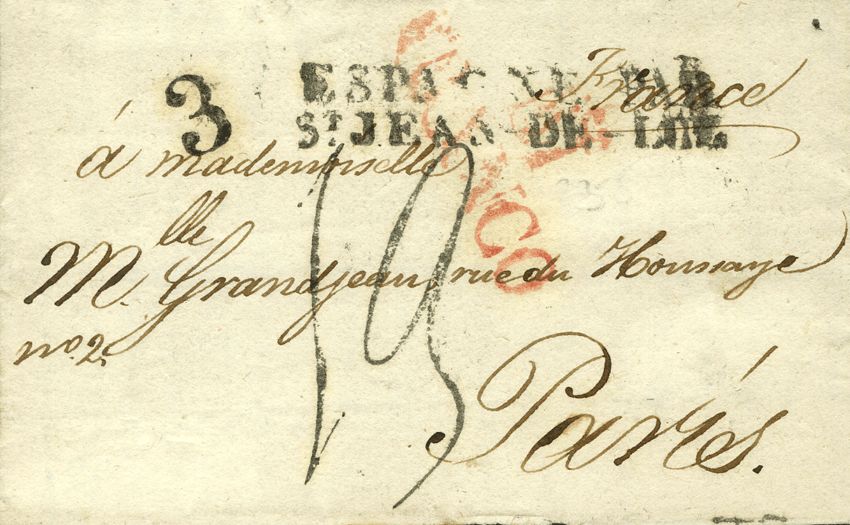 3
ESPAGNE PAR
ST JEAN-DE-LUZ
France
à mademoiselle
Mlle Grandjean, rue du Houssaye
no. 2.
19
Parés.